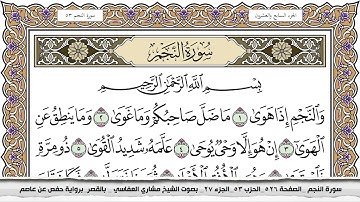 الجزء السابع والعشرون
سورة النجم ٥٣
سُورَةُ النَّجْمِ
بِسْمِ اللَّهِ الرَّحْمَٰنِ الرَّحِيمِ
وَالنَّجْمِ إِذَا هَوَىٰ ١ مَا ضَلَّ صَاحِبُكُمْ وَمَا غَوَىٰ ٢ وَمَا يَنطِقُ عَنِ
الْهَوَىٰ ٣ إِنْ هُوَ إِلَّا وَحْيٌ يُوحَىٰ ٤ عَلَّمَهُ شَدِيدُ الْقُوَىٰ ٥ ذُو مِرَّةٍ
سورة النجم _ الصفحة ٥٢٦_ الحزب ٥٣_ الجزء ٢٧ _ بصوت الشيخ مشاري العفاسي .. بالقصر برواية حفص عن عاصم